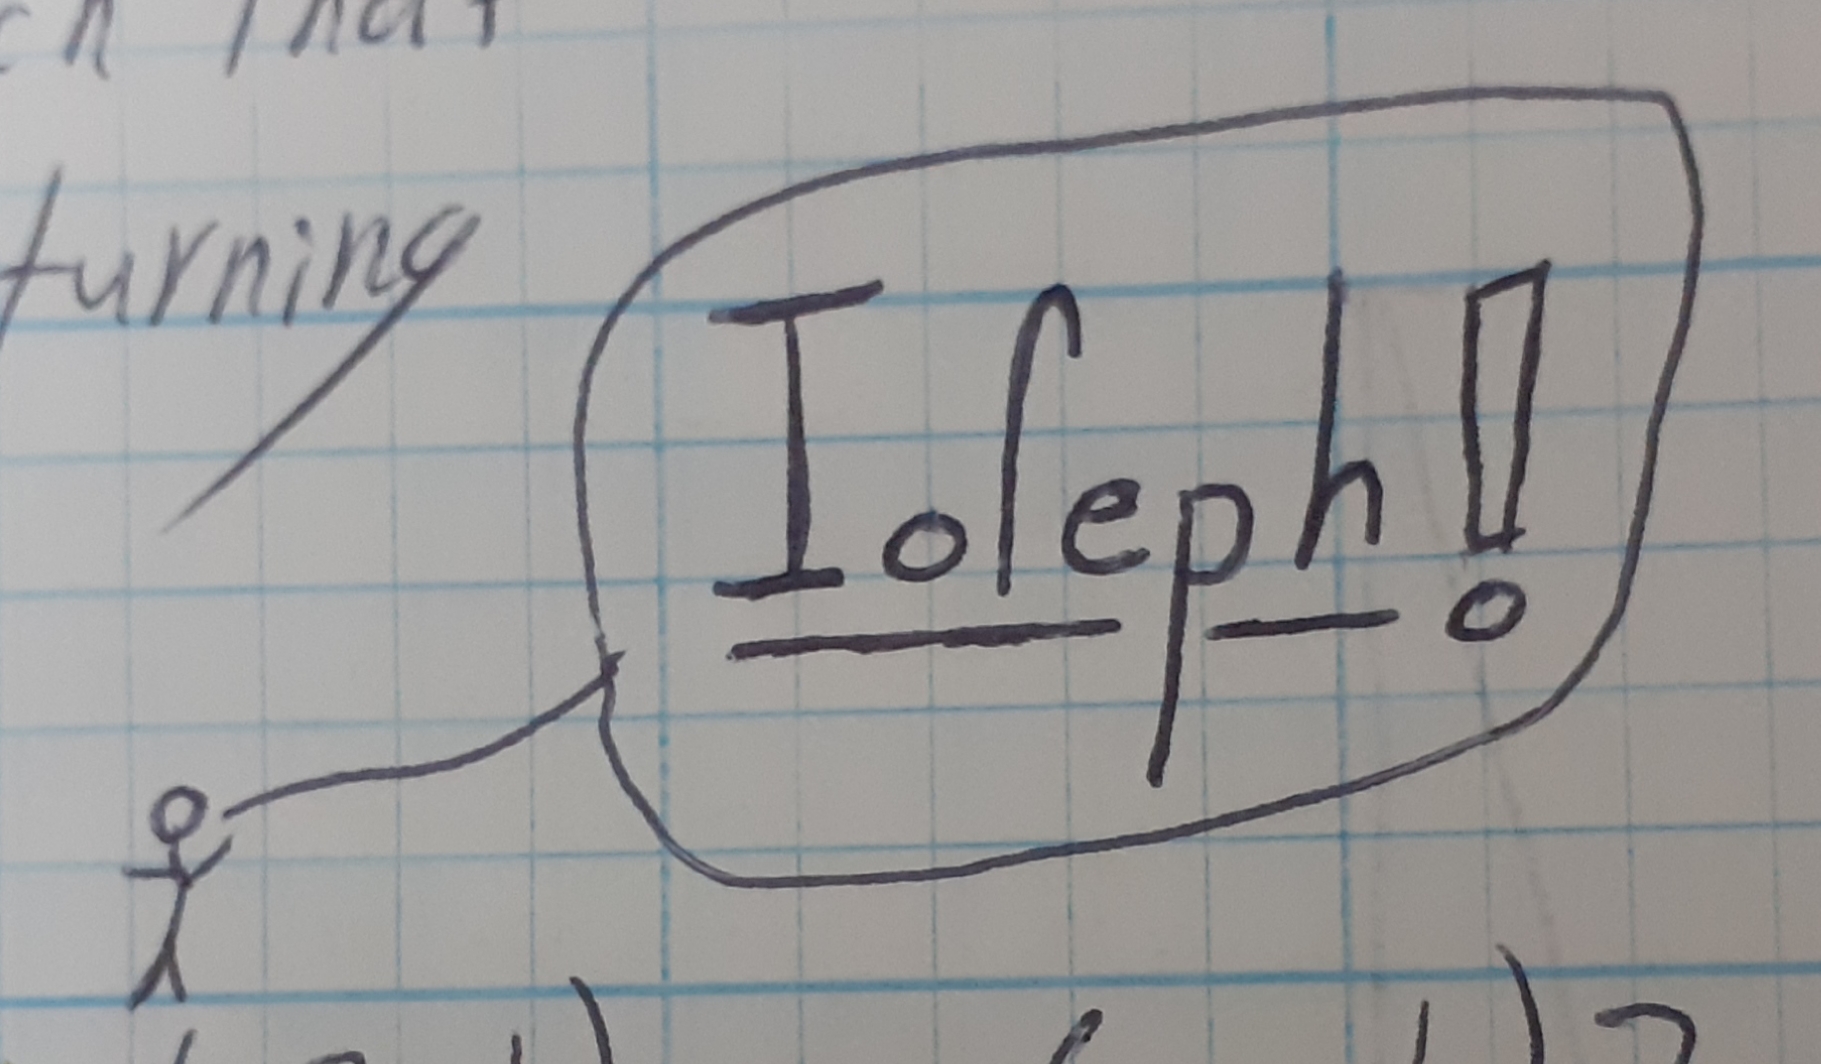 that
turning
Ioſeph!